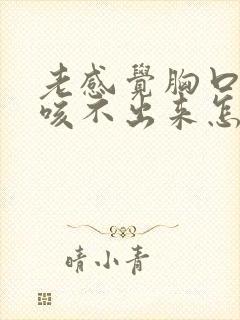 老感覺胸口
咳不出来怎
晴小青